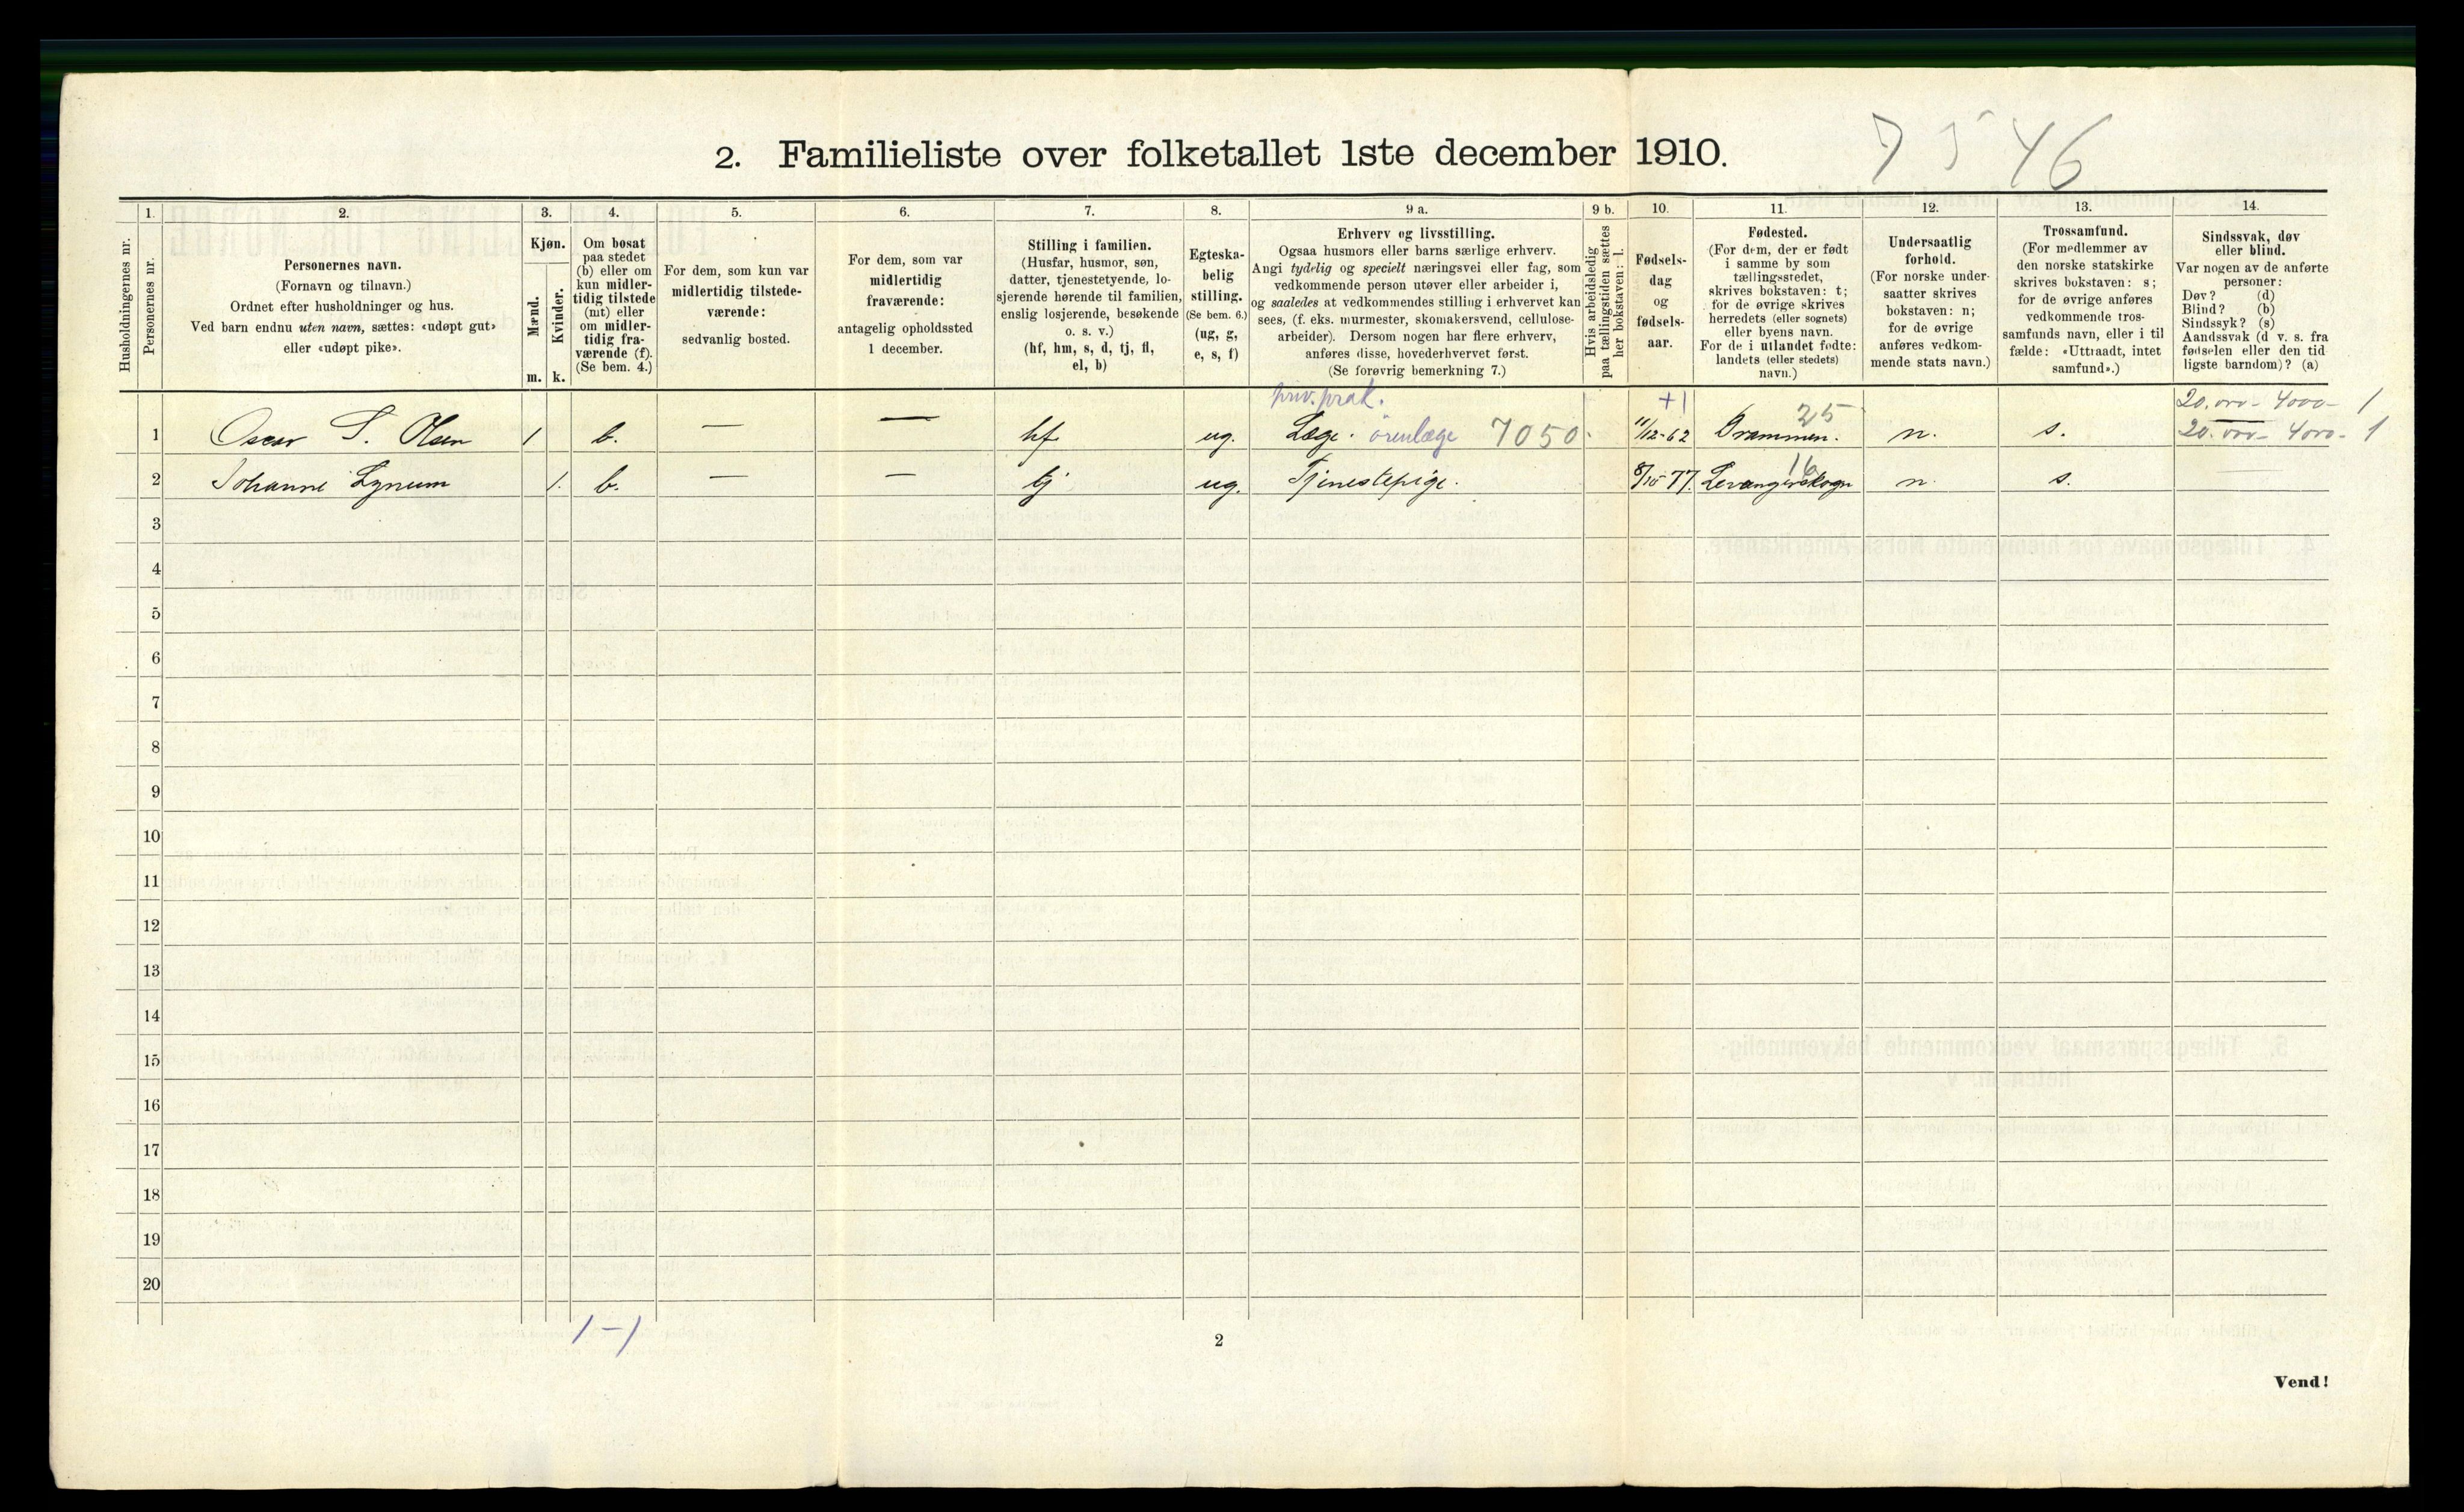 2. Familieliste over folketallet 1ste december 1910.
7546
Husholdningernes nr.
1.
Personernes nr.
2.
Personernes navn.
(Fornavn og tilnavn.)
Ordnet efter husholdninger og hus.
Ved barn endnu uten navn, sættes: «udøpt gut»
eller «udøpt pike».
3.
Kjøn.
Mænd.
Kvinder.
m. k.
4.
Om bosat
paa stedet
(b) eller om
kun midler-
tidig tilstede
(mt) eller
om midler-
tidig fra-
værende (f).
(Se bem. 4.)
5.
For dem, som kun var
midlertidig tilstede-
værende:
sedvanlig bosted.
6.
For dem, som var
midlertidig
fraværende:
antagelig opholdssted
1 december.
7.
Stilling i familien.
(Husfar, husmor, søn,
datter, tjenestetyende, lo-
sjerende hørende til familien,
enslig losjerende, besøkende
o. s. v.)
(hf, hm, s, d, tj, fl,
el, b)
8.
Egteska-
belig
stilling.
(Se bem. 6.)
(ug, g,
e, s, f)
9 a.
Erhverv og livsstilling.
Ogsaa husmors eller barns særlige erhverv.
Angi tydelig og specielt næringsvei eller fag, som
vedkommende person utøver eller arbeider i,
og saaledes at vedkommendes stilling i erhvervet kan
sees, (f. eks. murmester, skomakersvend, cellulose-
arbeider). Dersom nogen har flere erhverv,
anføres disse, hovederhvervet først.
(Se forøvrig bemerkning 7.)
9 b.
Hvis arbeidsledig
paa tællingstiden sættes
her bokstaven: l.
10.
Fødsels-
dag
og
fødsels-
aar.
11.
Fødested.
(For dem, der er født
i samme by som
tællingsstedet,
skrives bokstaven: t;
for de øvrige skrives
herredets (eller sognets)
eller byens navn.
For de i utlandet fødte:
landets (eller stedets)
navn.)
12.
Undersaatlig
forhold.
(For norske under-
saatter skrives
bokstaven: n;
for de øvrige
anføres vedkom-
mende stats navn.)
13.
Trossamfund.
(For medlemmer av
den norske statskirke
skrives bokstaven: s;
for de øvrige anføres
vedkommende tros-
samfunds navn, eller i til
fælde: «Uttraadt, intet
samfund».)
14.
Sindssvak, døv
eller blind.
Var nogen av de anførte
personer:
Døv? (d)
Blind? (b)
Sindssyk? (s)
Aandssvak (d v. s. fra
fødselen eller den tid
ligste barndom)? (a)
priv. prak. +1 25 20.000- 4000- 1
1 Oscar S. Olsen 1 b. — — hf ug. Læge. ørenlæge 7050. 11/12-62 Drammen. n. s. 20.000- 4000- 1
16
2 Johanne Lynum 1. b. — — tj ug. Tjenestepige. 8/10 77. Levangerskogn n. s.
3
4
5
6
7
8
9
10
11
12
13
14
15
16
17
18
19
20
1-1
2
Vend!